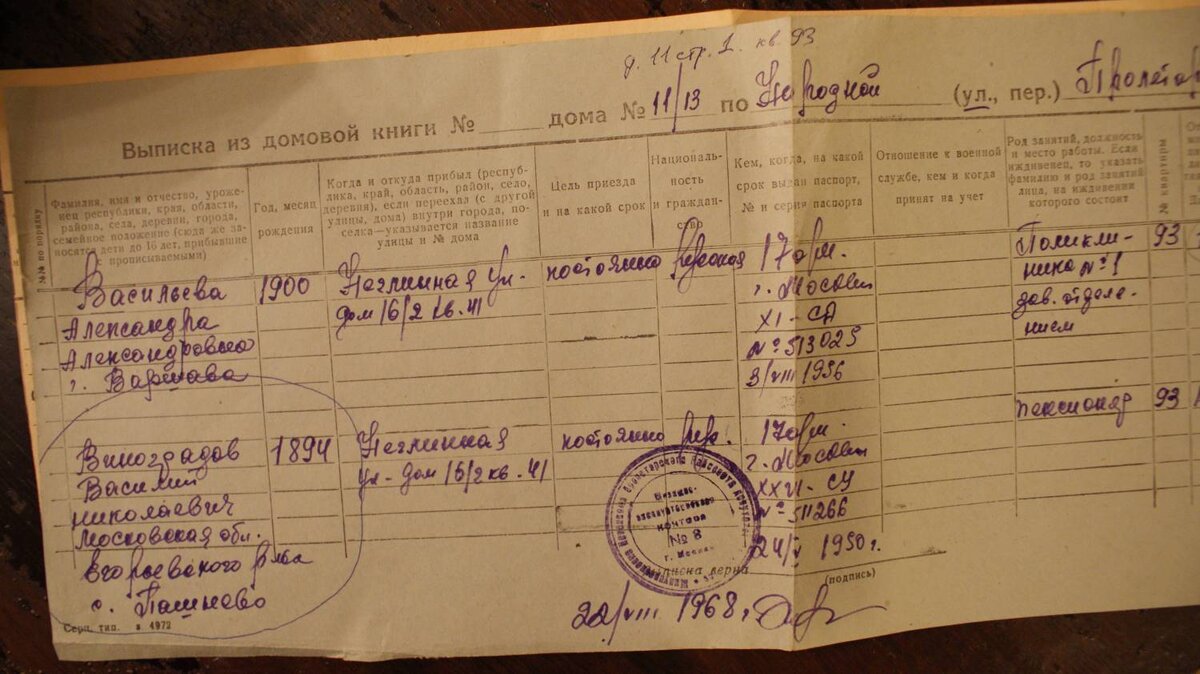 д. 11 стр. 1. кв. 93
Выписка из домовой книги № дома № 11/13 по Народной (ул., пер.) Пролетар
№№ по порядку
Фамилия, имя и отчество, уроже-
нец республики, края, области,
района, села, деревни, города,
семейное положение (сюда же за-
носятся дети до 16 лет, прибывшие
с прописываемыми)
Год, месяц
рождения
Когда и откуда прибыл (респуб-
лика, край, область, район, село,
деревня), если переехал (с другой
улицы, дома) внутри города, по-
селка—указывается название
улицы и № дома
Цель приезда
и на какой срок
Националь-
ность
и граждан-
ство
Кем, когда, на какой
срок выдан паспорт,
№ и серия паспорта
Отношение к военной
службе, кем и когда
принят на учет
Род занятий, должность
и место работы. Если
иждивенец, то указать
фамилию и род занятий
лица, на иждивении
которого состоит
№ квартиры
Васильева
Александра
Александровна
г. Варшава
1900
Неглинная ул.
дом 16/2 кв. 41
постоянно
русская
17 о/м.
г. Москвы
XI - СА
№ 513025
3/VIII 1956
Поликли-
ника № 1
зав. отделе-
нием
93
Виноградов
Василий
Николаевич
Московская обл.
Егорьевского р-на
с. Пашнево
1894
Неглинная
ул. дом 16/2 кв. 41
постоянно
рус.
17 о/м.
г. Москвы
XXVI - СУ
№ 511266
24/V 1950 г.
пенсионер
93
контора
№ 8
г. Москва
Выписка верна
(подпись)
22/VIII 1968 г.
Серп. тип. з. 4972